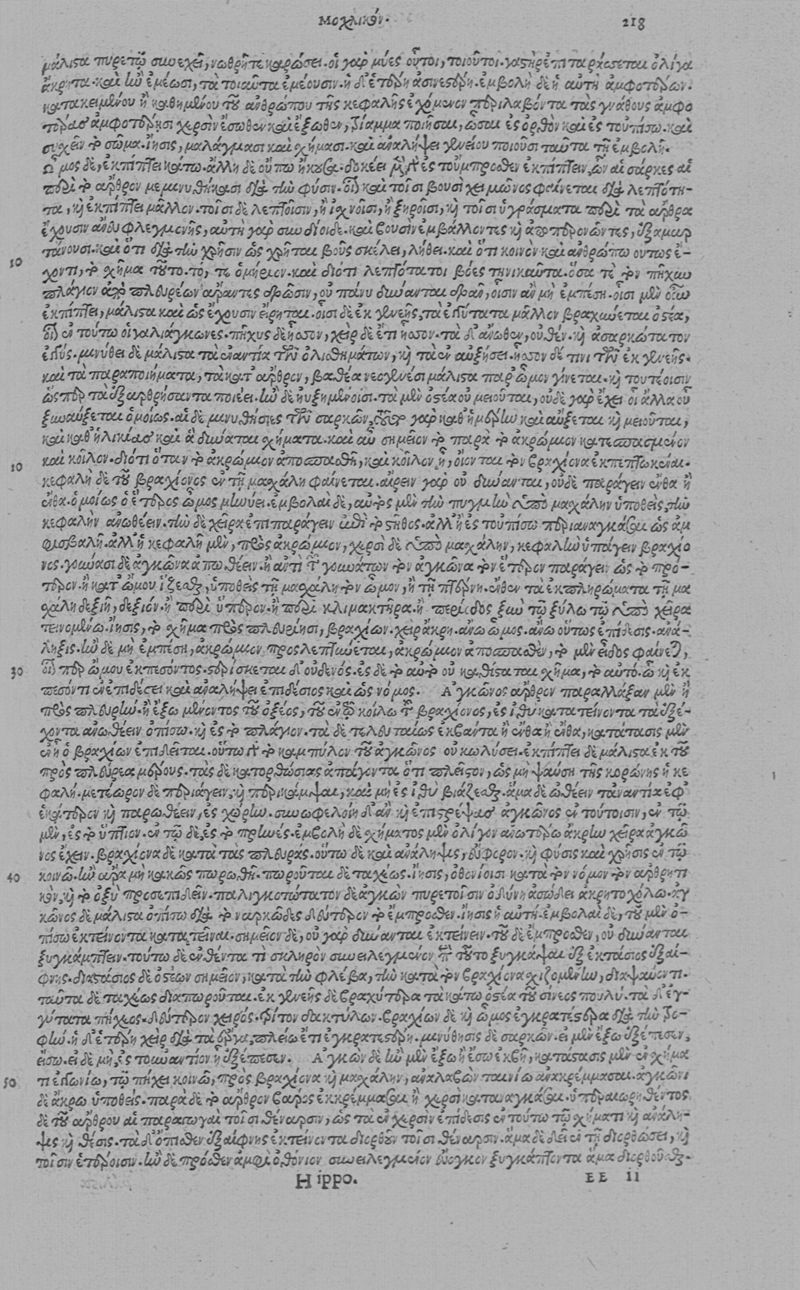 Μοχλικόν. 218
μάλιστα πυρετῷ συνεχεῖ, νωθρῇ τε καρώσει. οἱ γὰρ μύες οὗτοι, τοιοῦτοι. γαστὴρ ἐπιταράσσεται ὀλίγα
ἄκρητα. καὶ ἢν ἐμέωσι, τὰ τοιαῦτα ἐμέουσιν. ἡ δ' ἑτέρη ἀσινεστέρη. ἐμβολὴ δὲ ἡ αὐτὴ ἀμφοτέρων.
κατακειμένου ἢ καθημένου τοῦ ἀνθρώπου τῆς κεφαλῆς ἐχόμενον περιλαβόντα τὰς γνάθους ἀμφο
τέρας ἀμφοτέρῃσι χερσὶν ἔσωθεν καὶ ἔξωθεν, τρία ἅμα ποιῆσαι, ὦσαι ἐς ὀρθὸν καὶ ἐς τοὐπίσω. καὶ
συσχεῖν τὸ στῶμα. ἴησις, μαλάγμασι καὶ σχήμασι. καὶ ἀναλήψει γενείου ποιοῦσι ταὐτὰ τῇ ἐμβολῇ.
Ὦμος δὲ, ἐκπίπτει κάτω. ἄλλῃ δὲ οὔπω ἤκουσα. δοκέει μὲν ἐς τοὔμπροσθεν ἐκπίπτειν, ὧν αἱ σάρκες αἱ
περὶ τὸ ἄρθρον μεμινυθήκασι διὰ τὴν φθίσιν. οἷον καὶ τοῖσι βουσὶ χειμῶνος φαίνεται διὰ λεπτότη-
τα, καὶ ἐκπίπτει μᾶλλον. τοῖσι δὲ λεπτοῖσιν, ἢ ἰσχνοῖσι, ἢ ξηροῖσι, καὶ τοῖσι ὑγράσματα περὶ τὰ ἄρθρα
ἔχουσιν ἄνευ φλεγμονῆς, αὕτη γὰρ συνδέει.
10 χοντι, τὸ σχῆμα τοῦτο. τό, τε ὁμήρειον. καὶ διότι λεπτότατοι βόες τηνικαῦτα. ὅσα τε τὸν πῆχυν
πλάγιον ἀπὸ πλευρέων ἄραντες δρῶσιν, οὐ πάνυ δύνανται δρᾷν, οἷσιν ἂν μὴ ἐμπέσῃ.
ἐκπίπτει, μάλιστα καὶ ὡς ἔχουσιν εἴρηται. οἷσι δὲ ἐκ γενεῆς, τὰ ἔγγιστα μᾶλλον βραχύνεται ὀστέα,
οἷον τούτῳ οἱ γαλιάγκωνες. πῆχυς δὲ ἧσσον, χεὶρ δὲ ἔτι ἧσσον. τὰ δ' ἄνωθεν, οὐθέν. καὶ ἀσαρκώτατον
μινύθει δὲ μάλιστα τὰ ἐναντία τῶν ὀλισθημάτων, καὶ τὰ ἐν αὐξήσει. ἧσσον δέ τινι τῶν ἐκ γενεῆς.
καὶ τὰ παραποιήματα, τὰ κατ' ἄρθρον, βαθέα νεογενέσι μάλιστα παρ' ὦμον γίνεται. καὶ τουτέοισιν
ὥσπερ τὰ ἐξαρθρήσαντα ποιέει. ἢν δὲ ηὐξημένοισι. τὰ μὲν ὀστέα οὐ μειοῦται, οὐδὲ γὰρ ἔχει οἷ ἄλλα οὐ
ξυναύξεται ὁμοίως. αἱ δὲ μινυθήσιες τῶν σαρκῶν, γὰρ καθ' ἡμέρην καὶ αὔξεται καὶ μειοῦται,
καὶ καθ' ἡλικίας καὶ ἃ δύναται σχήματα. καὶ αὖ σημεῖον τὸ παρὰ τὸ ἀκρώμιον κατεσπασμένον
10 καὶ κοῖλον. διότι ὅταν τὸ ἀκρώμιον ἀποσπασθῇ, καὶ κοῖλον ᾖ, οἴονται τὸν βραχίονα ἐκπεπτωκέναι.
κεφαλὴ δὲ τοῦ βραχίονος ἐν τῇ μασχάλῃ φαίνεται. αἴρειν γὰρ οὐ δύνανται, οὐδὲ παράγειν ἔνθα ἢ
ἔνθα. ὁμοίως ὁ ἕτερος ὦμος μηνύει. ἐμβολαὶ δὲ, αὐτὸς μὲν τὴν πυγμὴν ὑπὸ μασχάλην ὑποθεὶς, τὴν
κεφαλὴν ἀνωθέειν. τὴν δὲ χεῖρα ἐπιπαράγειν ἐπὶ τὸ στῆθος. ἄλλη ἐς τοὐπίσω περιαναγκάσαι ὡς ἀμ
φισβαλῇ. ἄλλη κεφαλῇ μὲν, πρὸς ἀκρώμιον, χερσὶ δὲ ὑπὸ μασχάλην, κεφαλὴν ὑπάγειν βραχίο
νος. γούνασι δὲ ἀγκῶνα ἀπωθέειν. ἢ ἀντὶ τῶν γουνάτων τὸν ἀγκῶνα τὸν ἕτερον παράγειν ὡς τὸ πρό-
τερον. ἢ κατ' ὤμου ἵζεσθαι, ὑποθεὶς τῇ μασχάλῃ τὸν ὦμον, ἢ τῇ πτέρνῃ. ἐνθεὶς τὰ ἐκπληρώματα τῇ μα
σχάλῃ δεξιῇ, δεξιόν. ἢ περὶ ὕπερον. ἢ περὶ κλιμακτῆρα. ἢ περίοδος ξὺν τῷ ξύλῳ τῷ ὑπὸ χεῖρα
τεινομένῳ. ἴησις, τὸ σχῆμα πρὸς πλευρῇσι, βραχίων. χεὶρ ἄκρη. ἄνω ὦμος. ἄνω οὕτως ἐπίδεσις. ἀνά-
ληξις. ἢν δὲ μὴ ἐμπέσῃ, ἀκρώμιον προσλεπτύνεται, ἀκρώμιον ἀποσπασθὲν, τὸ μὲν εἶδος φαίνεται,
30 οἷον περ ὤμου ἐκπεσόντος. στερίσκεται δ' οὐδενός. ἐς δὲ τὸ αὐτὸ οὐ καθίσταται σχῆμα, τὸ αὐτό. ᾧ καὶ ἐκ
πεσόντι ἐν ἐπιδέσει καὶ ἀναλήψει ἐπιδέσιος καὶ ὡς νόμος. Ἀγκῶνος ἄρθρον παραλλάξαν μὲν ἢ
πρὸς πλευρὴν. ἢ ἔξω μένοντος τοῦ ὀξέος, τοῦ ἐν τῷ κοίλῳ τοῦ βραχίονος, ἐς ἰθὺ κατατείνοντα τὰ ἐξέ-
χοντα ἀνωθέειν ὀπίσω. καὶ ἐς τὸ πλάγιον. τὰ δὲ τελέως ἐκβάντα ἢ ἔνθα ἢ ἔνθα, κατάτασις μὲν
ἐν ᾗ ὁ βραχίων ἐπιδεῖται. οὕτω γὰρ τὸ καμπύλον τοῦ ἀγκῶνος οὐ κωλύσει. ἐκπίπτει δὲ μάλιστα ἐκ τοῦ
πρὸς πλευρέα μέρους. τὰς δὲ κατορθώσιας ἀπάγοντα ὅτι πλεῖστον, ὡς μὴ ψαύσῃ τῆς κορώνης ἡ κε
φαλή. μετέωρον δὲ περιάγειν, καὶ περικάμψαι, καὶ μὴ ἐς ἰθὺ βιάζεσθαι. ἅμα δὲ ὠθέειν τἀναντία ἐφ'
ἑκάτερον καὶ παρωθέειν, ἐς χώρην. συνωφελοίη δ' ἂν καὶ ἐπιστρέψας ἀγκῶνος ἐν τούτοισιν, ἐν τῷ
μὲν, ἐς τὸ ὕπτιον. ἐν τῷ δὲ, ἐς τὸ πρηνές. ἐμβολὴ δὲ σχήματος μὲν ὀλίγον ἀνωτέρω ἄκρην χεῖρα ἀγκῶ
νος ἔχειν. βραχίονα δὲ κατὰ τὰς πλευράς. οὕτω δὲ καὶ ἀνάληψις, εὔφορον. καὶ φύσις καὶ χρῆσις ἐν τῷ
40 κοινῷ. ἢν ἄρα μὴ κακῶς πωρωθῇ. πωροῦται δὲ ταχέως. ἴησις, ὀθονίοισι κατὰ τὸν νόμον τὸν ἀρθρητι
κὸν, καὶ τὸ ὀξὺ προσεπιδεῖν. παλιγκοτώτατον δὲ ἀγκὼν πυρετοῖσιν ὀδύνῃ ἀσώδει ἀκρητοχόλῳ. ἀγ
κῶνος δὲ μάλιστα ὀπίσω διὰ τὸ ναρκῶδες. δεύτερον τὸ ἔμπροσθεν. ἴησις ἡ αὐτή. ἐμβολαὶ δὲ, τοῦ μὲν ὀ-
πίσω ἐκτείνοντα κατατεῖναι. σημεῖον δὲ, οὐ γὰρ δύνανται ἐκτείνειν. τοῦ δὲ ἔμπροσθεν, οὐ δύνανται
ξυγκάμπτειν. τούτῳ δὲ ἐνθέντα τι σκληρὸν συνειλεγμένον περὶ τοῦτο ξυγκάμψαι ἐξ ἐκτάσιος ἐξαί-
φνης. διαστάσιος δὲ ὀστέων σημεῖον, κατὰ τὴν φλέβα, τὴν κατὰ τὸν βραχίονα σχιζομένην, διαψαύοντι.
ταῦτα δὲ ταχέως διαπωροῦται. ἐκ γενεῆς δὲ βραχύτερα τὰ κάτω ὀστέα τοῦ σίνεος πουλύ. τὰ δ' ἔγ-
γύτατα πήχιος. δεύτερον χειρός. τρίτον δακτύλων. βραχίων δὲ καὶ ὦμος ἐγκρατέστερα διὰ τὴν τρο-
φήν. ἡ δ' ἑτέρη χεὶρ διὰ τὰ ἔργα, πλείω ἔτι ἐγκρατεστέρη. μινύθησις δὲ σαρκῶν. εἰ μὲν ἔξω ἐξέπεσεν,
ἔσω. εἰ δὲ μὴ, ἐς τοὐναντίον ἢ ἐξέπεσεν. Ἀγκὼν δὲ ἢν μὲν ἔξω ἢ ἔσω ἐκβῇ, κατάτασις μὲν ἐν σχήμα
50 τι ἐγγωνίῳ, τῷ πήχει κοινῷ, πρὸς βραχίονα καὶ μασχάλην, ἀναλαβὼν ταινίῃ ἀνακρέμμασαι. ἀγκῶνι
δὲ ἄκρῳ ὑποθείς. παρὰ δὲ τὸ ἄρθρον βάρος ἐκκρέμμασαι ἢ χερσὶ καταναγκάσαι. ὑπεραιωρηθέντος
δὲ τοῦ ἄρθρου αἱ παραγωγαὶ τοῖσι θέναρσιν, ὡς τὰ ἐν χερσίν. ἐπίδεσις ἐν τούτῳ τῷ σχήματι καὶ ἀνάλη-
ψις καὶ θέσις. τὰ δ' ὄπισθεν ἐξαίφνης ἐκτείνοντα διορθοῦν τοῖσι θέναρσιν. ἅμα δὲ δεῖ ἐν τῇ διορθώσει, καὶ
τοῖσιν ἑτέροισιν. ἢν δὲ πρόσθεν ἀμφὶ ὀθόνιον συνειλεγμένον εὔογκον ξυγκάμπτοντα ἅμα διορθοῦσθαι.
Hippo. EE ii